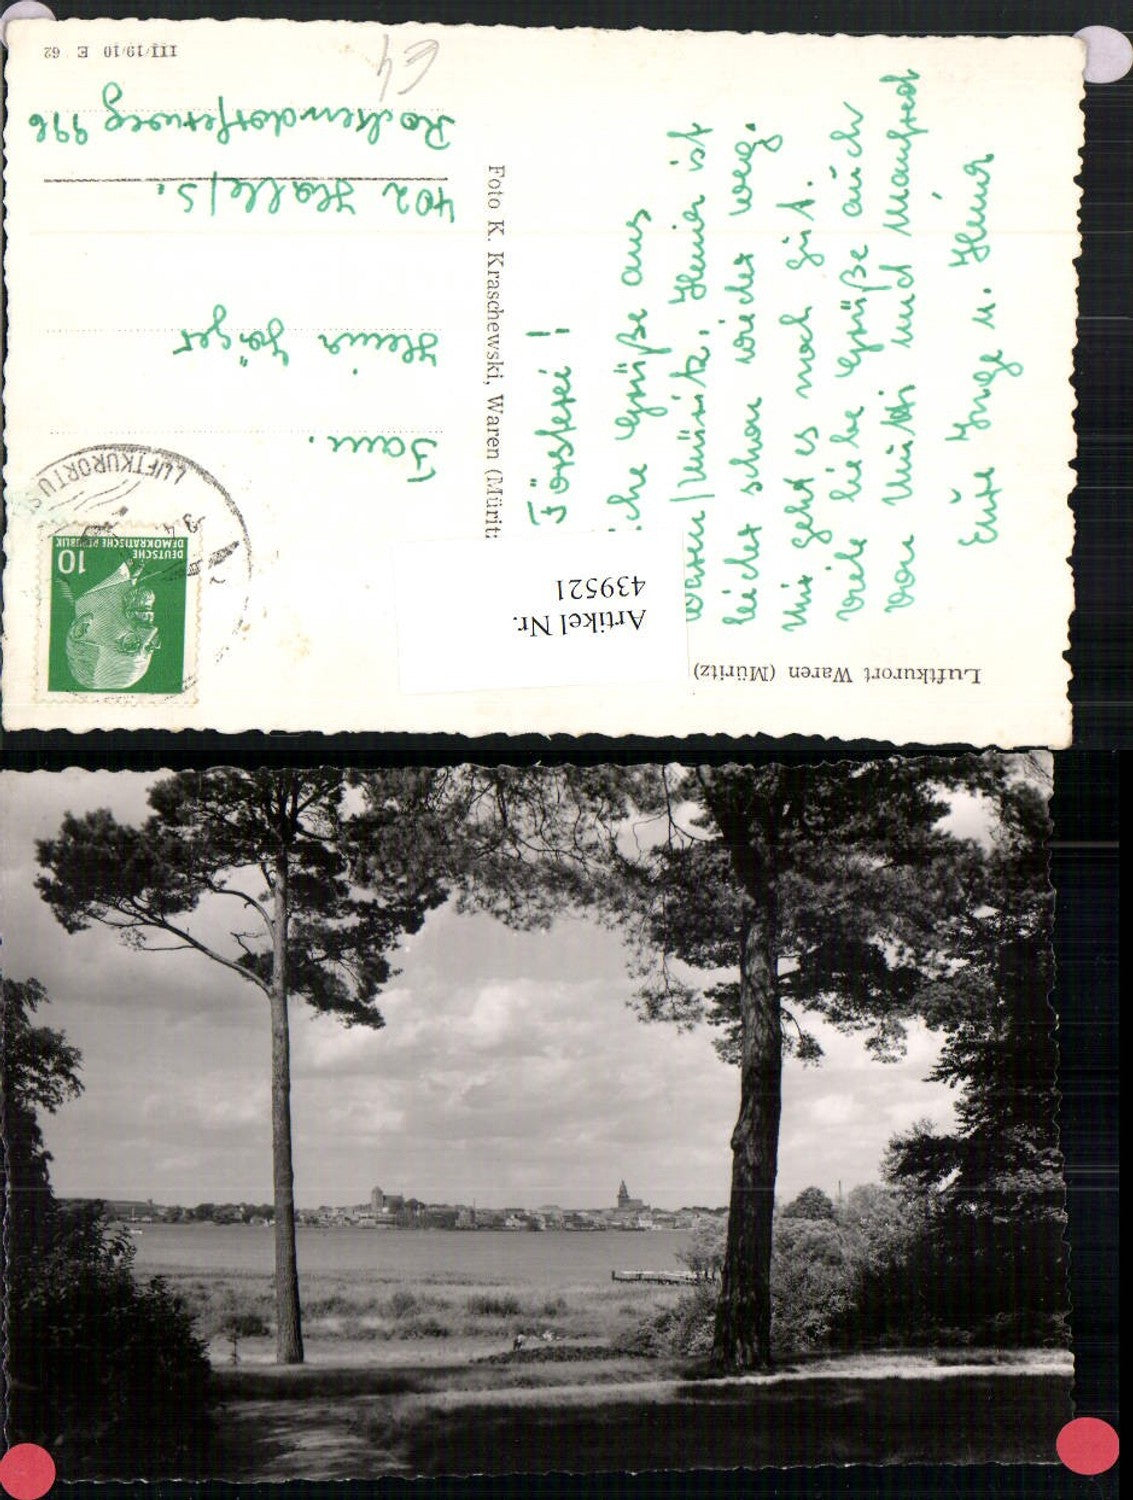 Luftkurort Waren (Müritz)
Försterei!
Grüße aus
Waren/Müritz. Heiner ist
leider schon wieder weg.
Mir geht es noch gut.
Viele liebe Grüße auch
von Mutti und Manfred
Eure Inge u. Heinr
Foto K. Kraschewski, Waren (Müritz
LUFTKURORT
DEUTSCHE
DEMOKRATISCHE REPUBLIK
10
Fam.
Heinr Jäger
402 Halle/S.
996
III/19/10 E 62
€4
Artikel Nr.
439521